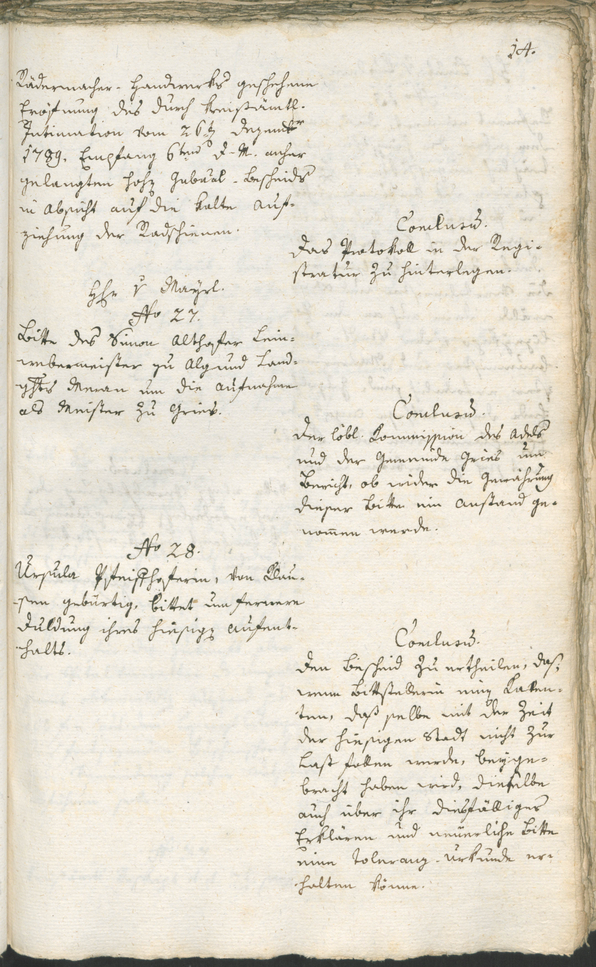 14.
Rädermacher-Handwerks geschehene
Eröfnung des durch Kreisämtl.
Intimation vom 26t Dezember
1789. Empfang 6ten d. M. anher
gelangten hohe Gubäal-Bescheids
in Absicht auf die kalte Auf-
ziehung der Radschienen.
Conclusum.
Das Protokoll in der Regi-
stratur zu hinterlegen.
Hhr v Mayrl.
No 27.
Bitte des Simon Althofer Lein-
webermeister zu Algund Land-
ghts Meran um die Aufnahme
als Meister zu Gries.
Conclusum.
Der löbl. Kommission des Adels
und der Gemeinde Gries um
Bericht, ob wider die Gewährung
dieser Bitte ein Anstand ge-
nommen werde.
No 28.
Ursula von Klau-
sen gebürtig, bittet um fernere
Duldung ihres hiesige Aufent-
halts.
Conclusum.
Den Bescheid zu ertheilen, daß,
wenn Bittstellerin einen
daß selbe mit der Zeit
der hiesigen Stadt nicht zur
Last fallen werde, beyge-
bracht haben wird, dieselbe
auch über ihr diesfälliges
Erklären und neuerliche Bitte
eine Toleranz-Urkunde er-
halten könne.